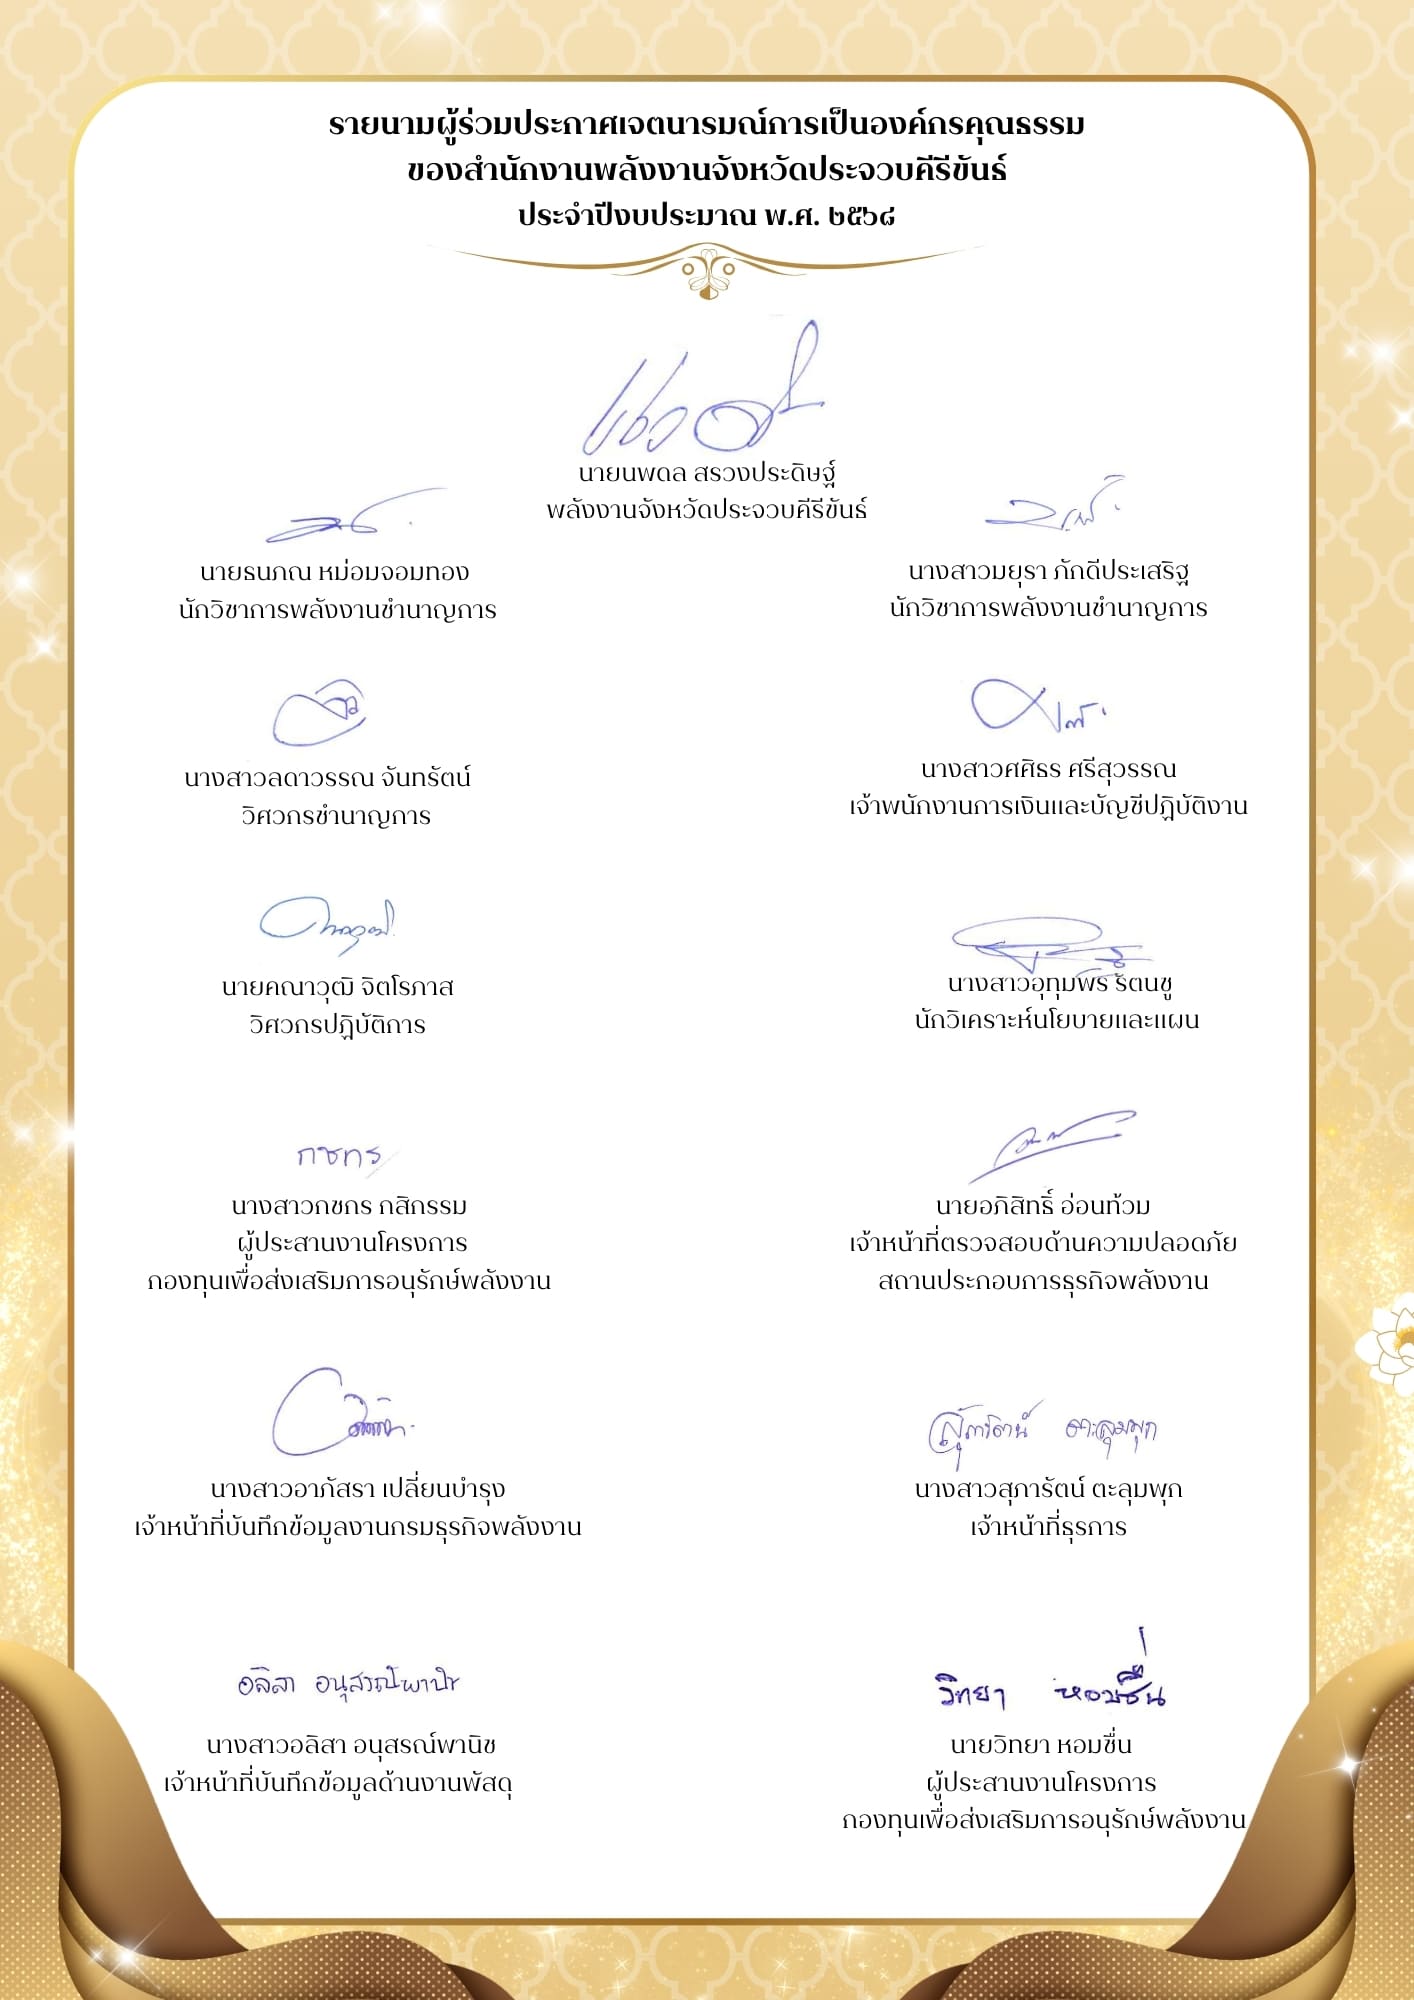 รายนามผู้ร่วมประกาศเจตนารมณ์การเป็นองค์กรคุณธรรม
ของสำนักงานพลังงานจังหวัดประจวบคีรีขันธ์
ประจำปีงบประมาณ พ.ศ. ๒๕๖๘
นายนพดล สรวงประดิษฐ์
พลังงานจังหวัดประจวบคีรีขันธ์
นายธนภณ หม่อมจอมทอง
นักวิชาการพลังงานชำนาญการ
นางสาวมยุรา ภักดีประเสริฐ
นักวิชาการพลังงานชำนาญการ
นางสาวลดาวรรณ จันทรัตน์
วิศวกรชำนาญการ
นางสาวศศิธร ศรีสุวรรณ
เจ้าพนักงานการเงินและบัญชีปฏิบัติงาน
นายคณาวุฒิ จิตโรภาส
วิศวกรปฏิบัติการ
นางสาวอุทุมพร รัตนชู
นักวิเคราะห์นโยบายและแผน
กชกร
นางสาวกชกร กสิกรรม
ผู้ประสานงานโครงการ
กองทุนเพื่อส่งเสริมการอนุรักษ์พลังงาน
นายอภิสิทธิ์ อ่อนท้วม
เจ้าหน้าที่ตรวจสอบด้านความปลอดภัย
สถานประกอบการธุรกิจพลังงาน
นางสาวอาภัสรา เปลี่ยนบำรุง
เจ้าหน้าที่บันทึกข้อมูลงานกรมธุรกิจพลังงาน
สุภารัตน์ ตะลุมพุก
นางสาวสุภารัตน์ ตะลุมพุก
เจ้าหน้าที่ธุรการ
อลิสา อนุสรณ์พานิช
นางสาวอลิสา อนุสรณ์พานิช
เจ้าหน้าที่บันทึกข้อมูลด้านงานพัสดุ
วิทยา หอมชื่น
นายวิทยา หอมชื่น
ผู้ประสานงานโครงการ
กองทุนเพื่อส่งเสริมการอนุรักษ์พลังงาน